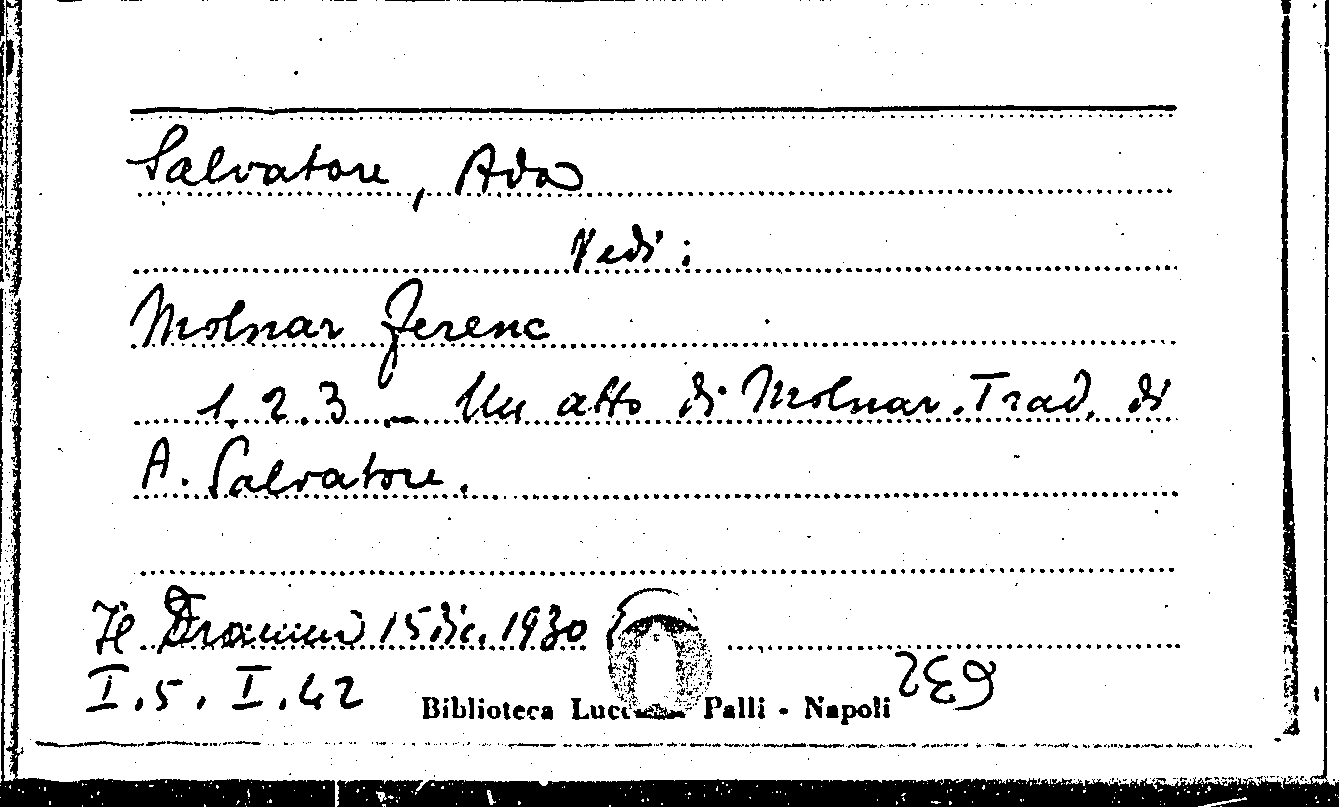 Salvatore, Ada
Vedi:
Molnar Ferenc
1.2.3 - Un atto di Molnar. Trad. di
A. Salvatore.
Il Dramma 15 dic. 1930
I.5. I.42
Biblioteca Palli - Napoli